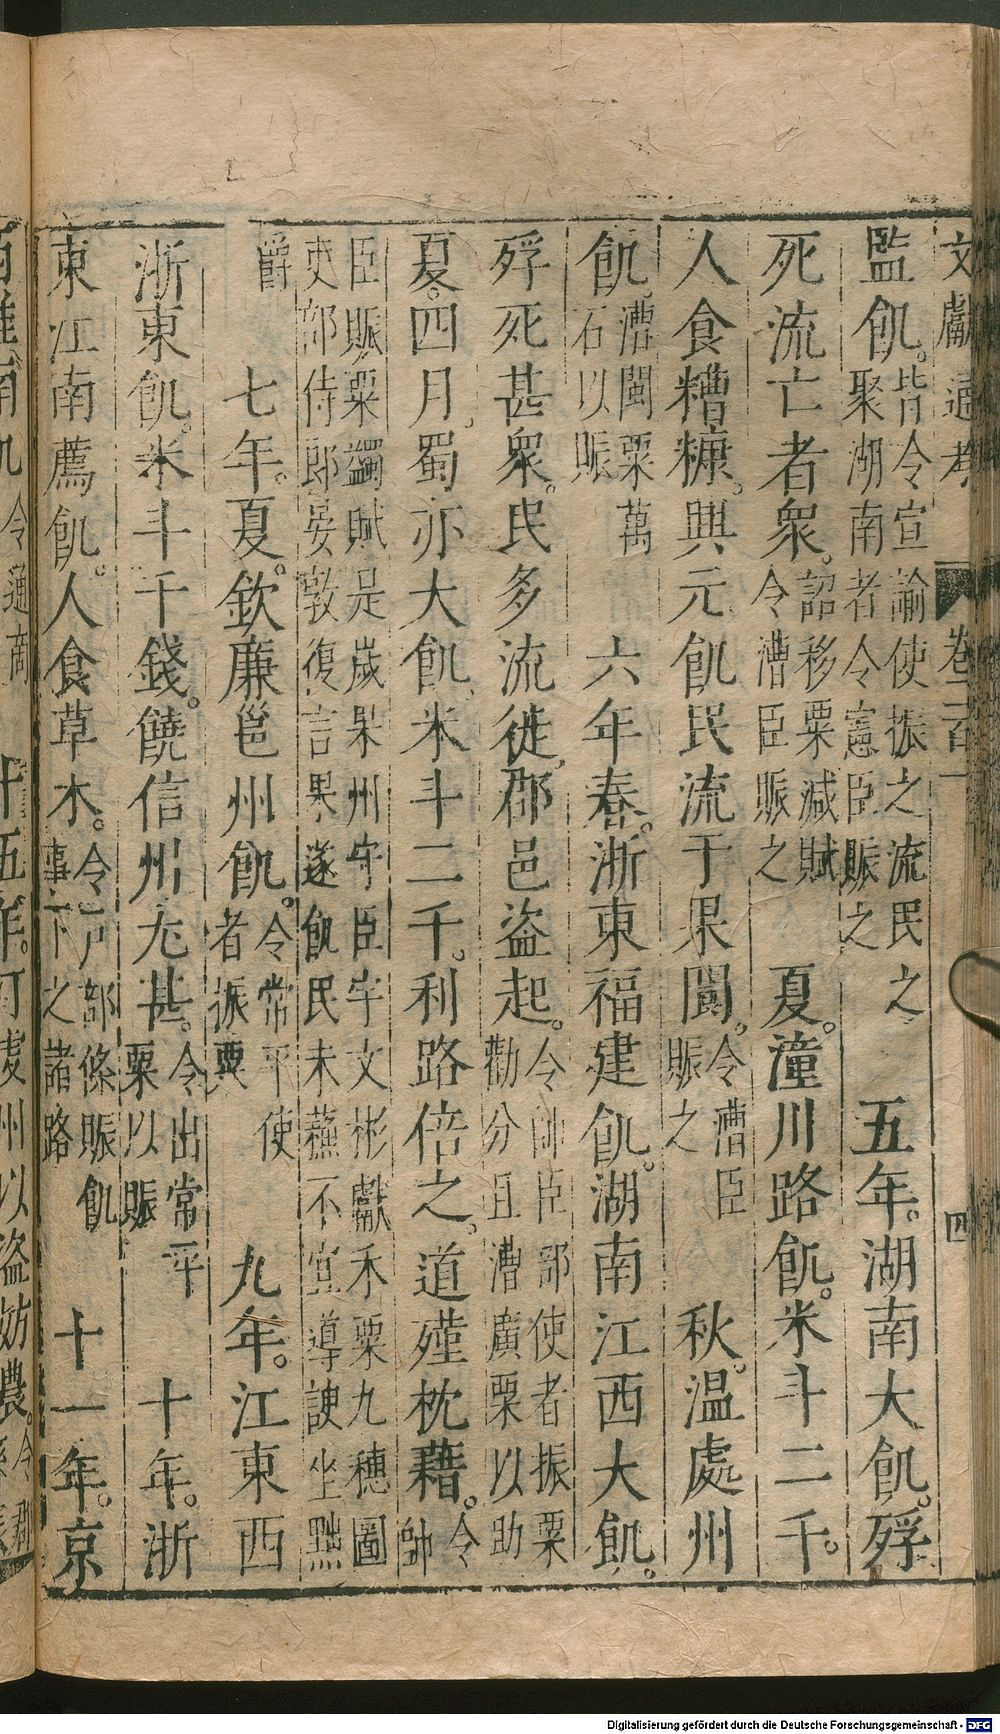 文獻通考 卷三百一 四
監飢。皆令宣諭使振之流民之聚湖南者令憲臣賑之 五年。湖南大飢。殍
死流亡者衆。詔移粟減賦令漕臣賑之 夏。潼川路飢。米斗二千。
人食糟糠。興元飢民流于果閬。令漕臣賑之 秋。温處州
飢。漕閩粟萬石以賑 六年春。浙東福建飢。湖南江西大飢。
殍死甚衆。民多流徙。郡邑盗起。令帥臣部使者振粟勸分且漕廣粟以助
夏。四月。蜀亦大飢。米斗二千。利路倍之。道殣枕藉。令帥
臣賑粟蠲賦是嵗果州守臣宇文彬獻禾粟九穗圖
吏部侍郎晏敦復言果遂飢民未蘇不宜導諛坐黜
爵 七年。夏。欽廉邕州飢。令常平使者振粟 九年。江東西
浙東飢。米斗千錢。饒信州尤甚。令出常平粟以賑 十年。浙
東江南薦飢。人食草木。令戸部條賑飢事下之諸路 十一年。京
西淮南飢令通商 十五年。
Digitalisierung gefördert durch die Deutsche Forschungsgemeinschaft - DFG